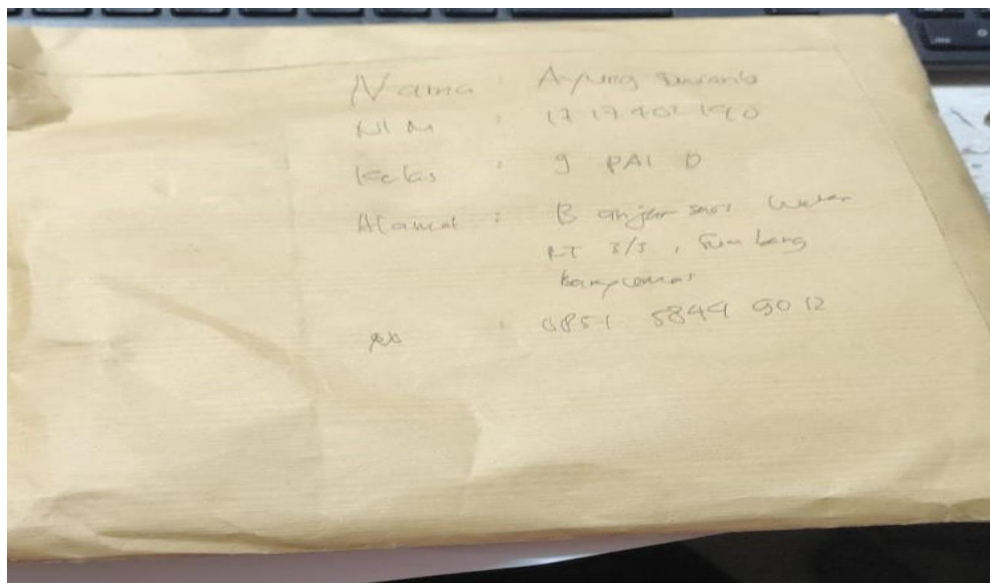 Nama : Ayung
NIM : 1717402190
Kelas : 9 PAI D
Alamat : Banjarsari Wetan
RT 3/5, Sumbang
Banyumas
: 0851 5844 9012